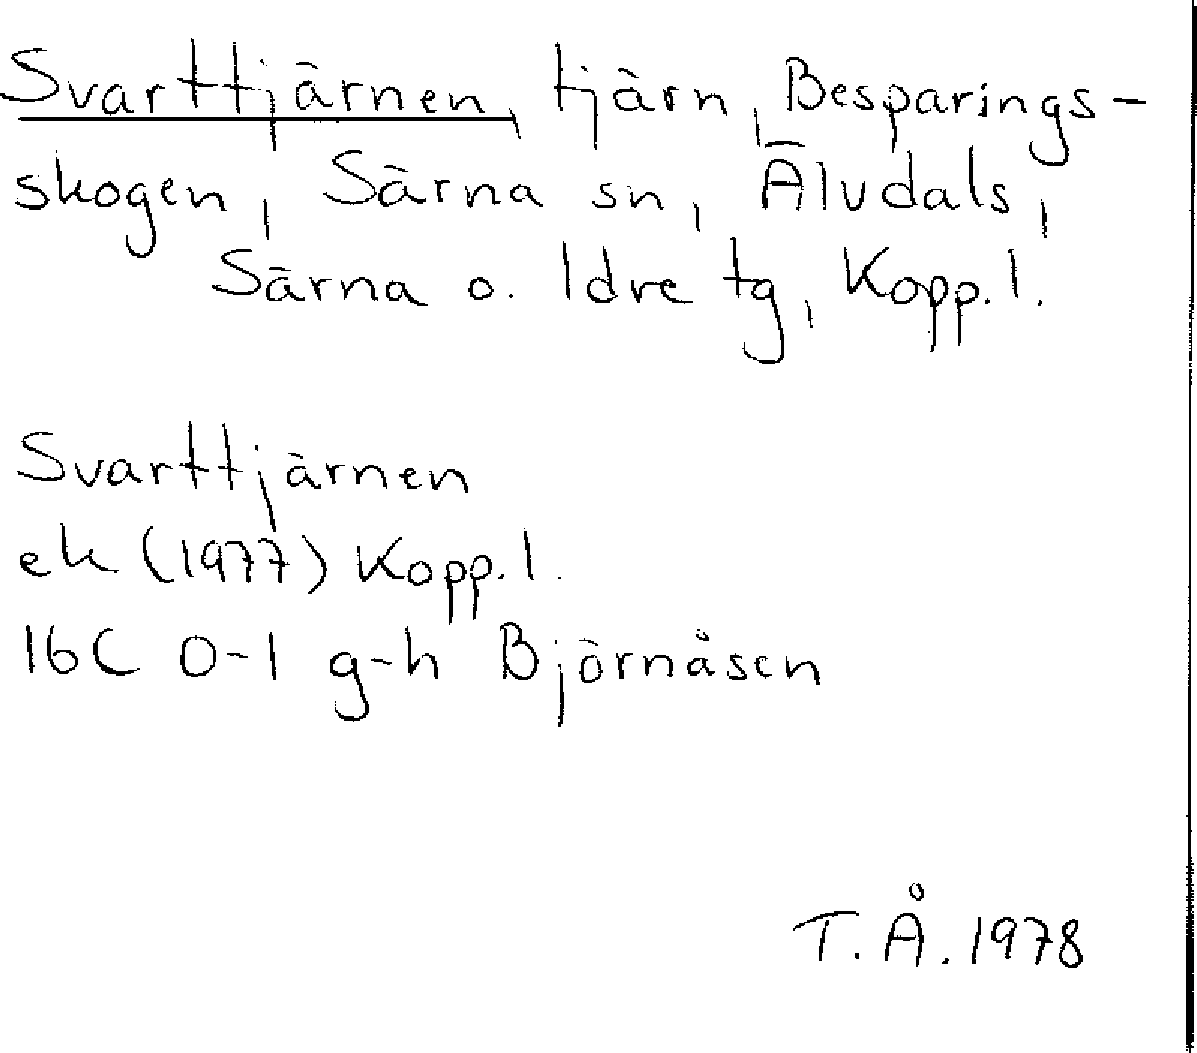 Svarttjärnen, tjärn, Besparings-
skogen, Särna sn, Älvdals,
Särna o. Idre tg, Kopp. l.
Svarttjärnen
ek (1977) Kopp. l.
16C 0-1 g-h Björnåsen
T. Å. 1978